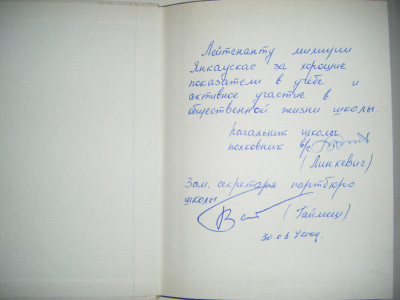 Лейтенанту милиции
Янкаускас за хорошие
показатели в учебе и
активное участие в
общественной жизни школы.
Начальник школы
полковник в/с
(Линкевич)
Зам. секретаря партбюро
школы